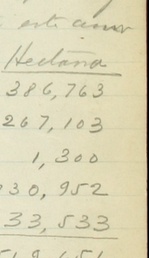 este
Hectárea
386,763
267,103
1,300
30,952
33,533